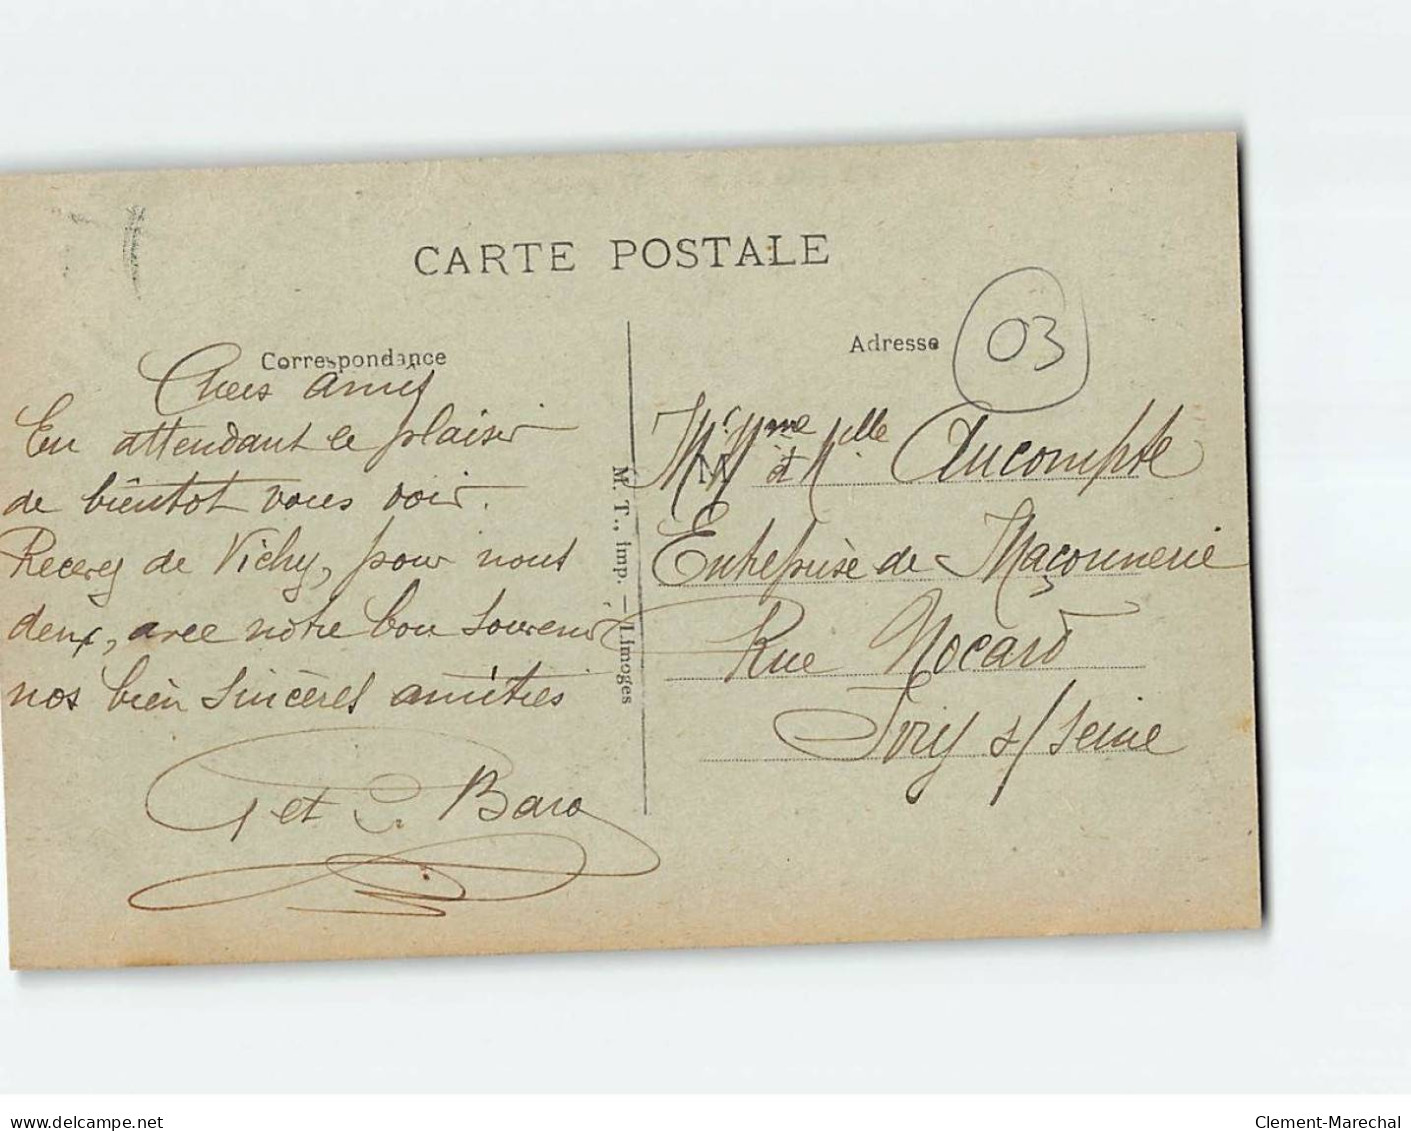 CARTE POSTALE
Correspondance
Chers amis
En attendant le plaisir
de bientot vous voir.
Recevez de Vichy, pour nous
deux, avec notre bon souvenir
nos bien sincères amitiés
et Baro
M. T., imp. - Limoges
Adresse
03
M
Mr Mme et Melle Aucompte
Entreprise de Maçonnerie
Rue Nocard
Ivry s/ Seine
www.delcampe.net
Clement-Marechal